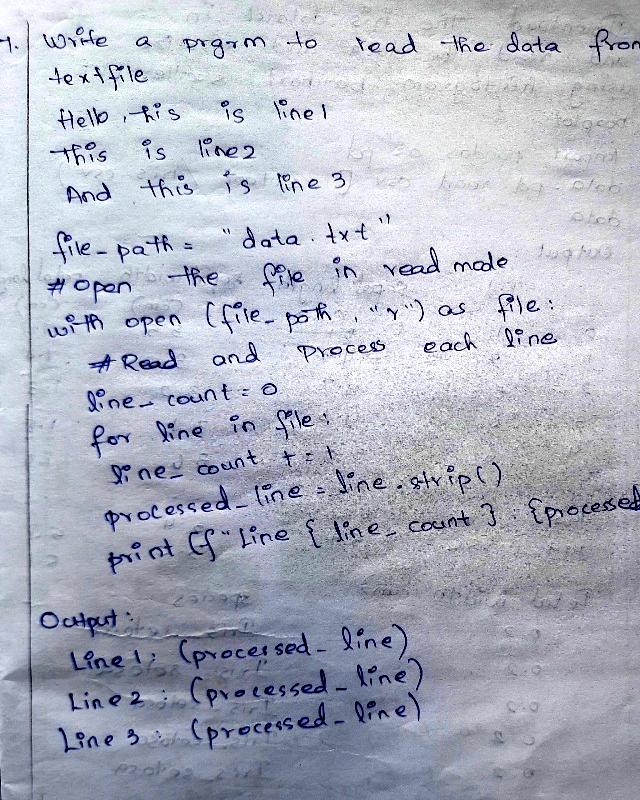 7. Write a prgrm to read the data from
textfile
Hello, this is line1
This is line2
And this is line 3
file_path = "data.txt"
# open the file in read mode
with open (file_path, "r") as file:
# Read and process each line
line_count = 0
for line in file:
line_count += 1
processed_line = line.strip()
print (f"Line { line_count } : {processed
Output:
Line 1: (processed_line)
Line 2: (processed_line)
Line 3: (processed_line)